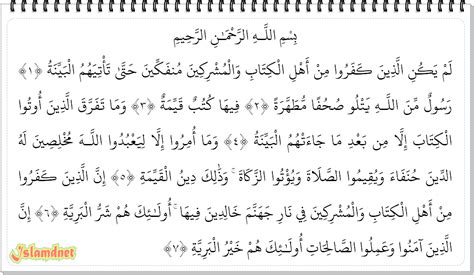 بِسْمِ اللَّـهِ الرَّحْمَـٰنِ الرَّحِيمِ
لَمْ يَكُنِ الَّذِينَ كَفَرُوا مِنْ أَهْلِ الْكِتَابِ وَالْمُشْرِكِينَ مُنفَكِّينَ حَتَّىٰ تَأْتِيَهُمُ الْبَيِّنَةُ ﴿١﴾
رَسُولٌ مِّنَ اللَّـهِ يَتْلُو صُحُفًا مُّطَهَّرَةً ﴿٢﴾ فِيهَا كُتُبٌ قَيِّمَةٌ ﴿٣﴾ وَمَا تَفَرَّقَ الَّذِينَ أُوتُوا
الْكِتَابَ إِلَّا مِن بَعْدِ مَا جَاءَتْهُمُ الْبَيِّنَةُ ﴿٤﴾ وَمَا أُمِرُوا إِلَّا لِيَعْبُدُوا اللَّـهَ مُخْلِصِينَ لَهُ
الدِّينَ حُنَفَاءَ وَيُقِيمُوا الصَّلَاةَ وَيُؤْتُوا الزَّكَاةَ ۚ وَذَٰلِكَ دِينُ الْقَيِّمَةِ ﴿٥﴾ إِنَّ الَّذِينَ كَفَرُوا
مِنْ أَهْلِ الْكِتَابِ وَالْمُشْرِكِينَ فِي نَارِ جَهَنَّمَ خَالِدِينَ فِيهَا ۚ أُولَـٰئِكَ هُمْ شَرُّ الْبَرِيَّةِ ﴿٦﴾ إِنَّ
الَّذِينَ آمَنُوا وَعَمِلُوا الصَّالِحَاتِ أُولَـٰئِكَ هُمْ خَيْرُ الْبَرِيَّةِ ﴿٧﴾
Islamdnet